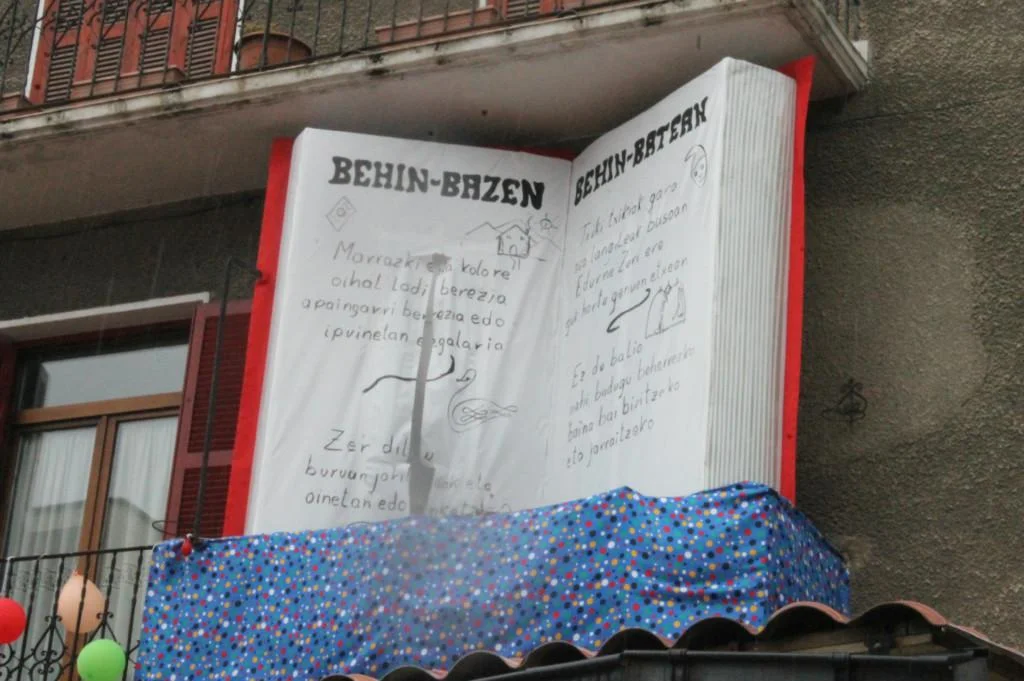 BEHIN-BAZEN
Marrazki eta kolore
oihal lodi berezia
apaingarri berezia edo
ipuinetan egalaria
Zer di
buruan
oinetan edo
BEHIN-BATEAN
Txiki txikiak gara
langileak basoan
Edurne Zuri ere
gure etxean
Ez da balio
nahi badugu beharrezko
baina bai bizitzeko
eta jarraitzeko